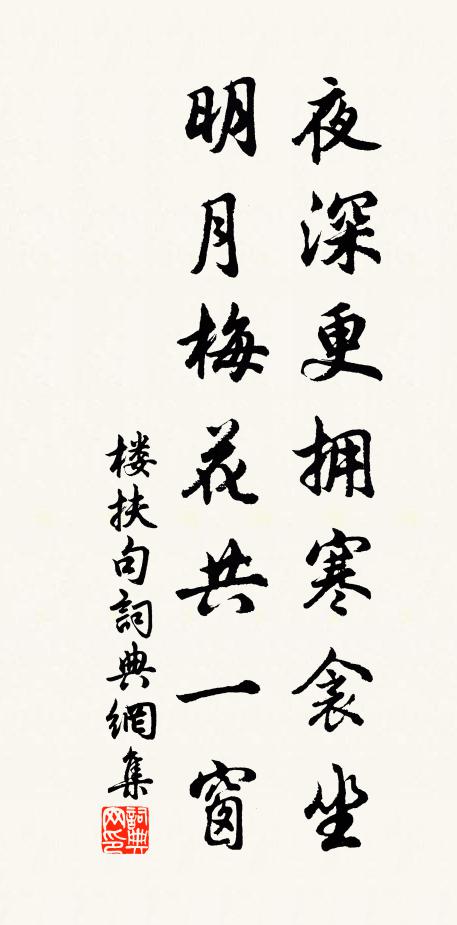 夜深更拥寒衾坐
明月梅花共一窗
楼扶句詞典網集
詞典
网印